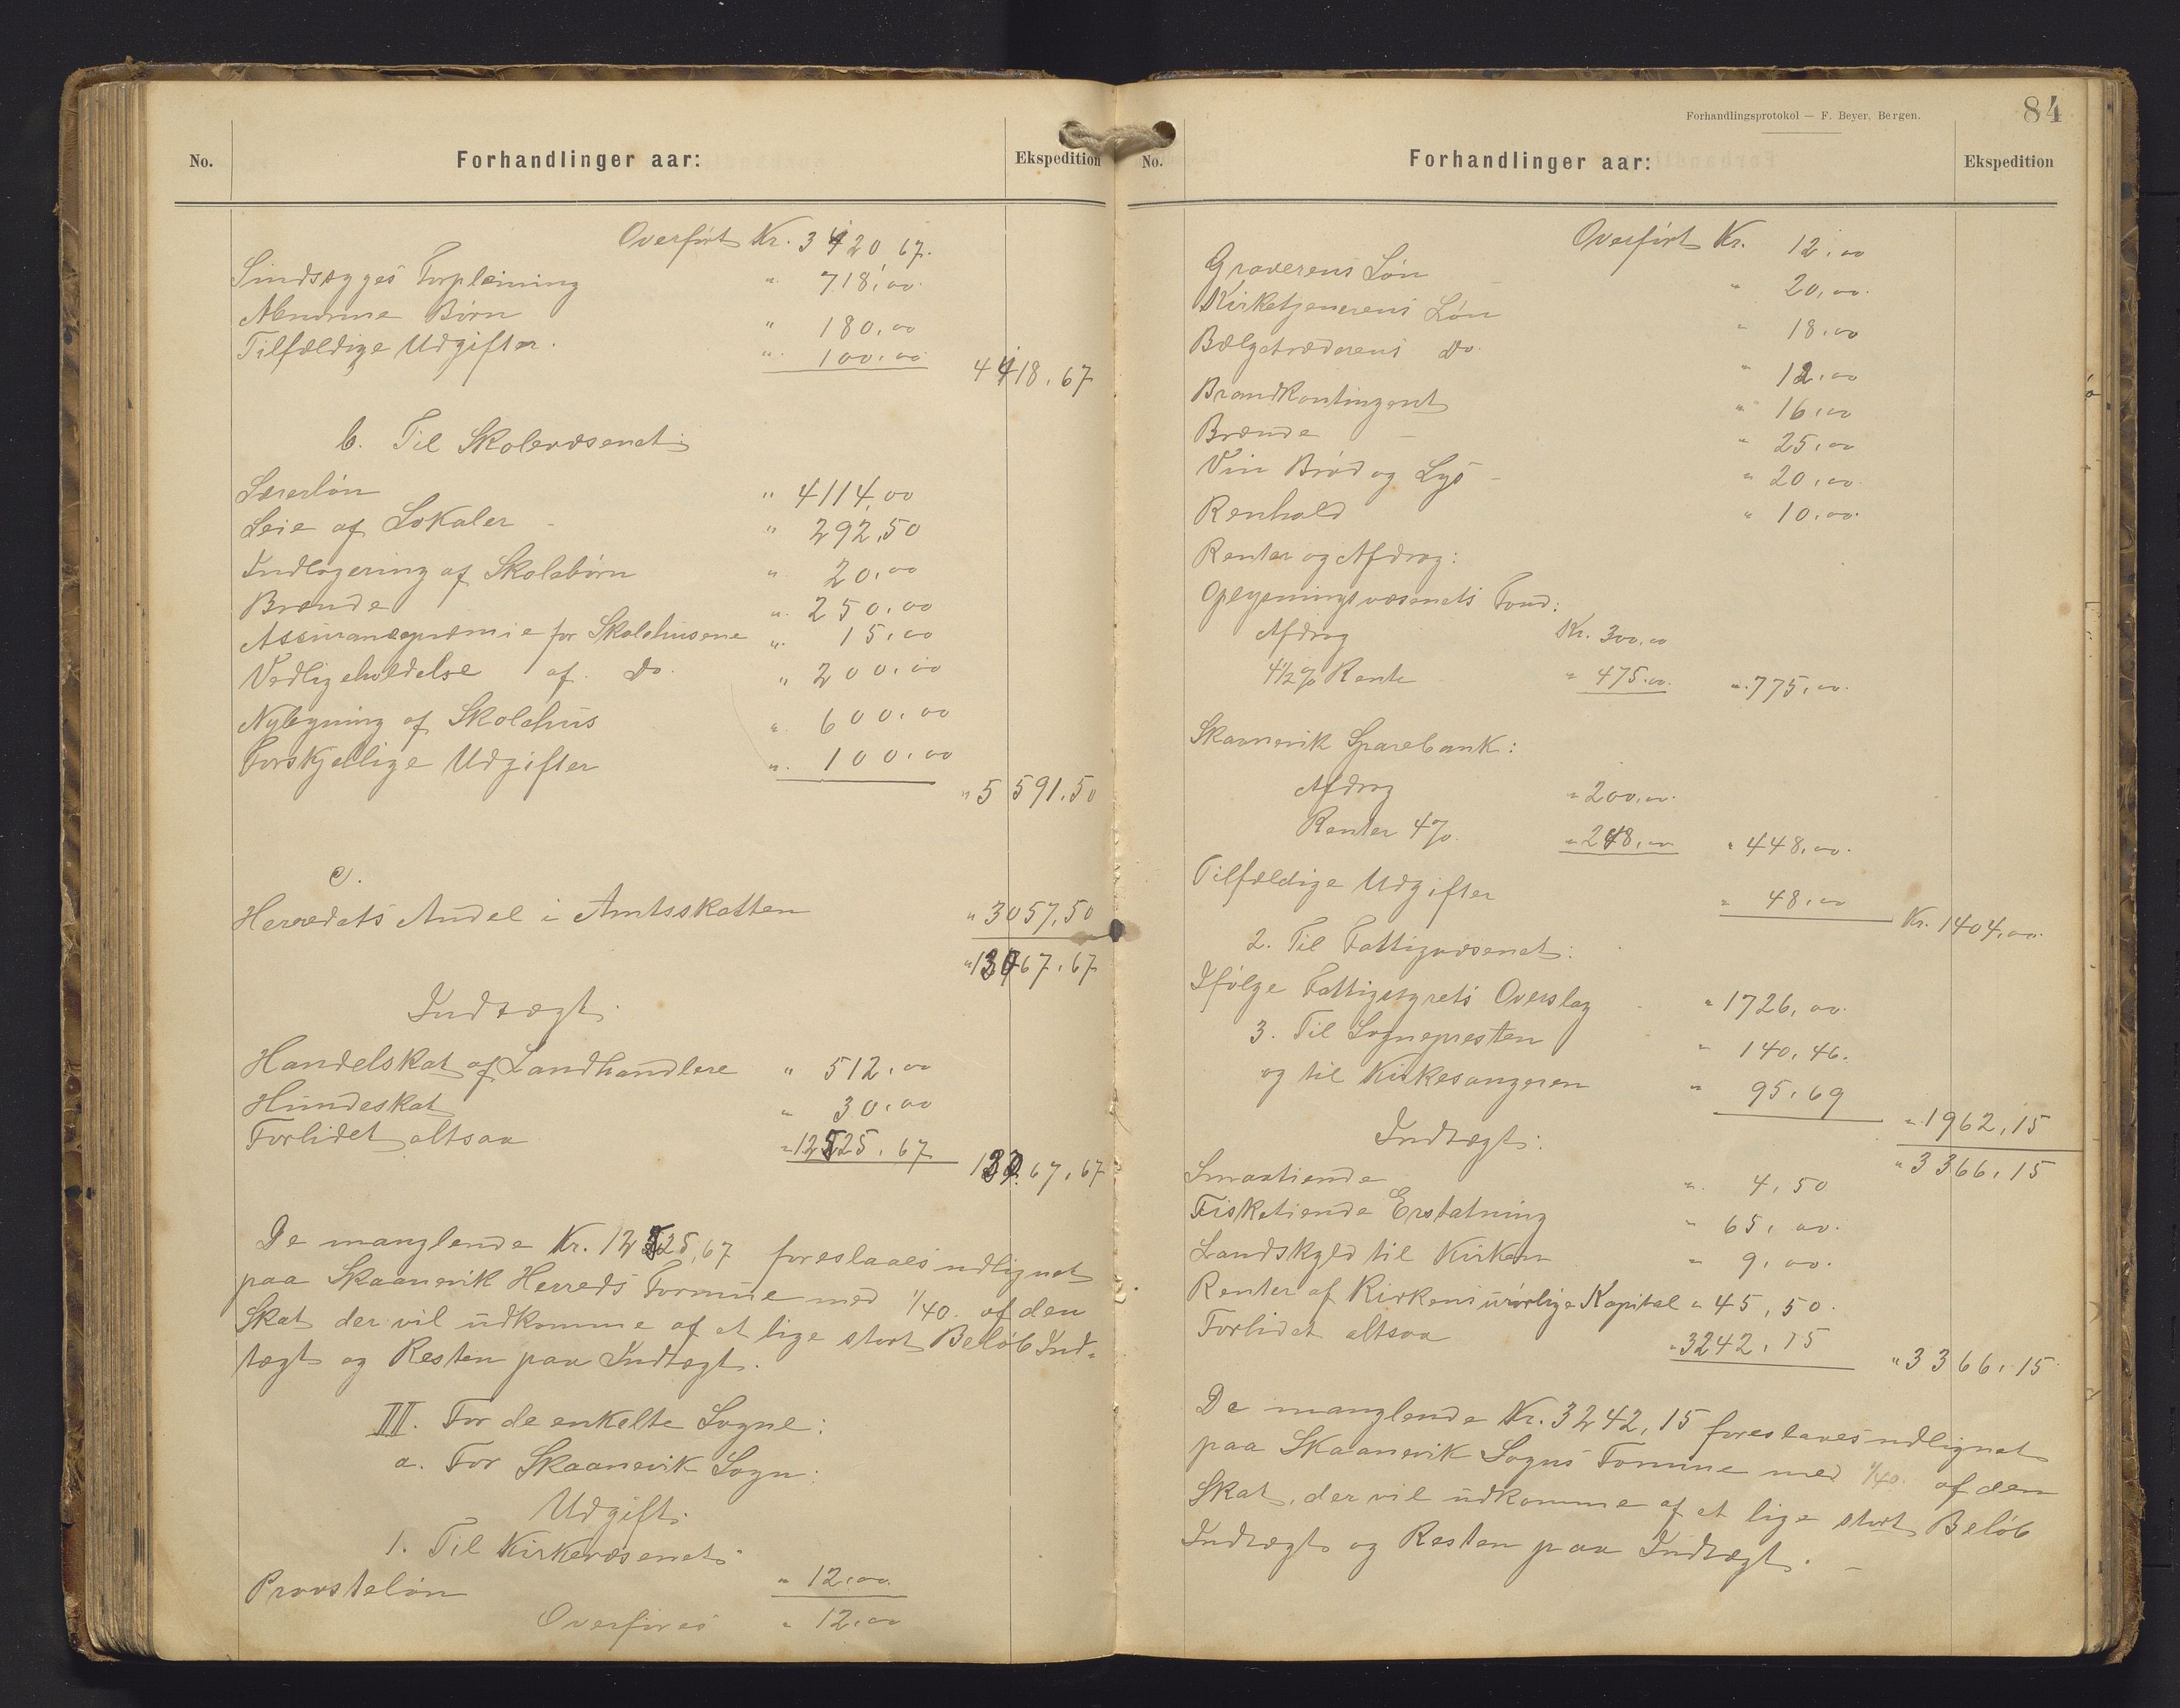 No. Forhandlinger aar: Ekspedition
Overført Kr. 3420,67.
Sindssyges Forpleining " 718,00
Abnorme Børn " 180,00
Tilfældige Udgifter. " 100,00 4418,67
b. Til Skolevæsenet:
Lærerløn " 4114,00
Leie af Lokaler - " 292,50
Indlogering af Skolebørn " 20,00
Brænde " 250,00
Assurancepræmie for Skolehusene " 15,00
Vedligeholdelse af Do. " 200,00
Nybygning af Skolehus " 600,00
Forskjellige Udgifter " 100,00
" 5591,50
c.
Herredets Andel i Amtsskatten " 3057,50
" 13067,67
Indtægt.
Handelskat af Landhandlere " 512,00
Hundeskat " 30,00
Forlidet altsaa " 12525,67 13067,67
De manglende Kr. 12525,67 foreslaaes udlignet
paa Skaanevik Herreds Formue med 1/40 af den
Skat der vil udkomme af et lige stort Beløb Ind-
tægt og Resten paa Indtægt.
III. For de enkelte Sogne:
a. For Skaanevik Sogn:
Udgift.
1. Til Kirkevæsenet:
Provsteløn " 12,00
Overføres " 12,00
Forhandlingsprotokol — F. Beyer, Bergen.
84
No. Forhandlinger aar: Ekspedition
Overført Kr. 12,00
Graverens Løn - " 20,00
Kirketjenerens Løn " 18,00
Bælgetræderens Do. " 12,00
Brandkontingent " 16,00
Brænde - " 25,00
Vin Brød og Lys - " 20,00
Renhold " 10,00
Renter og Afdrag:
Oplysningsvæsenets Fond:
Afdrag Kr. 300,00
4 1/2 % Rente " 475,00 " 775,00
Skaanevik Sparebank:
Afdrag " 200,00
Renter 4% " 248,00 " 448,00
Tilfældige Udgifter " 48,00 Kr. 1404,00
2. Til Fattigvæsenet:
Ifølge Fattigstyrets Overslag " 1726,00
3. Til Sognepresten " 140,46
og til Kirkesangeren " 95,69
" 1962,15
Indtægt: " 3366,15
Smaatiende " 4,50
Fisketiende Erstatning " 65,00
Landskyld til Kirken " 9,00
Renter af Kirkens urørlige Kapital " 45,50
Forlidet altsaa " 3242,15 " 3366,15
De manglende Kr. 3242,15 foreslaaes udlignet
paa Skaanevik Sogns Formue med 1/40 af den
Skat, der vil udkomme af et lige stort Beløb
Indtægt og Resten paa Indtægt. -